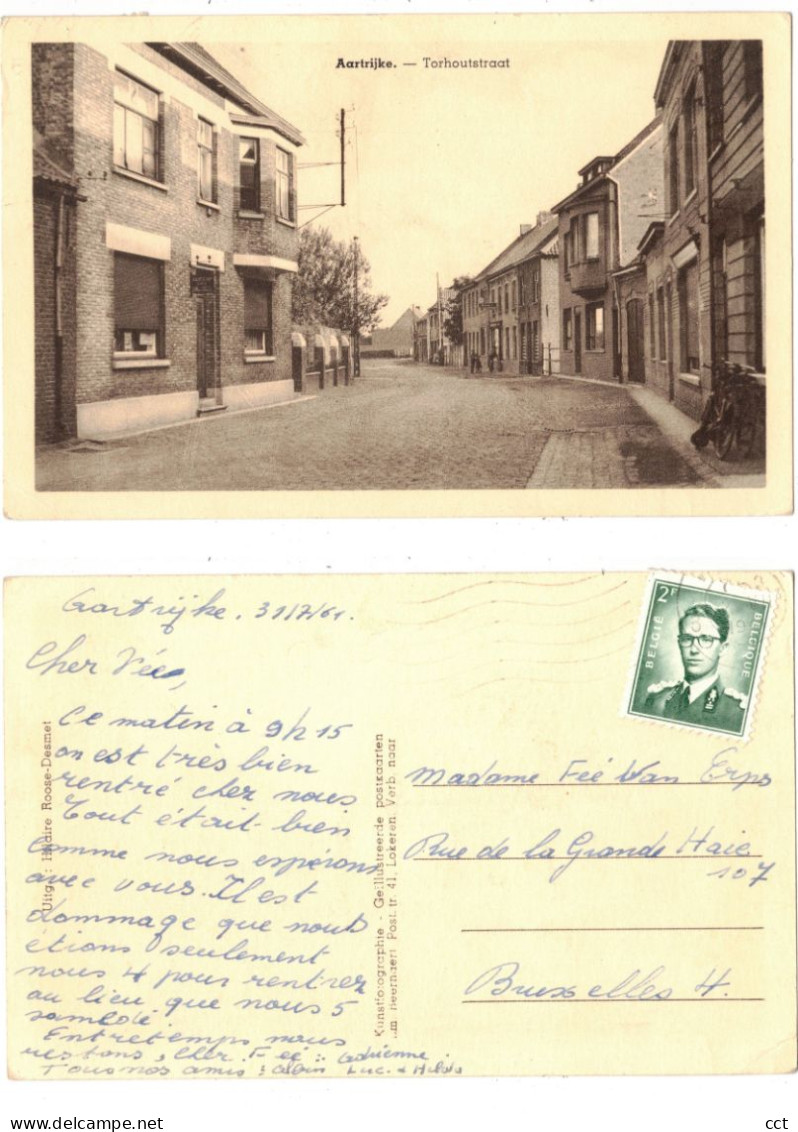 Aartrijke. — Torhoutstraat
Aartrijke, 31/7/61.
Cher Fée,
Ce matin à 9h15
on est très bien
rentré chez nous
Tout était bien
comme nous espérons
avec vous. Il est
dommage que nous
étions seulement
nous 4 pour rentrer
au lieu que nous 5
samedi.
Entretemps nous
restons, cher Feé : Adrienne
Tous nos amis : Albin Luc. + Hilda
Uitg. : Hilaire Roose-Desmet
Kunstfotographie - Geïllustreerde postkaarten
Beernaert Post. tr. 41, Lokeren. Verb. naar
2F
BELGIË
BELGIQUE
Madame Feé Van Erps
Rue de la Grande Haie
107
Bruxelles 4.
www.delcampe.net
cct